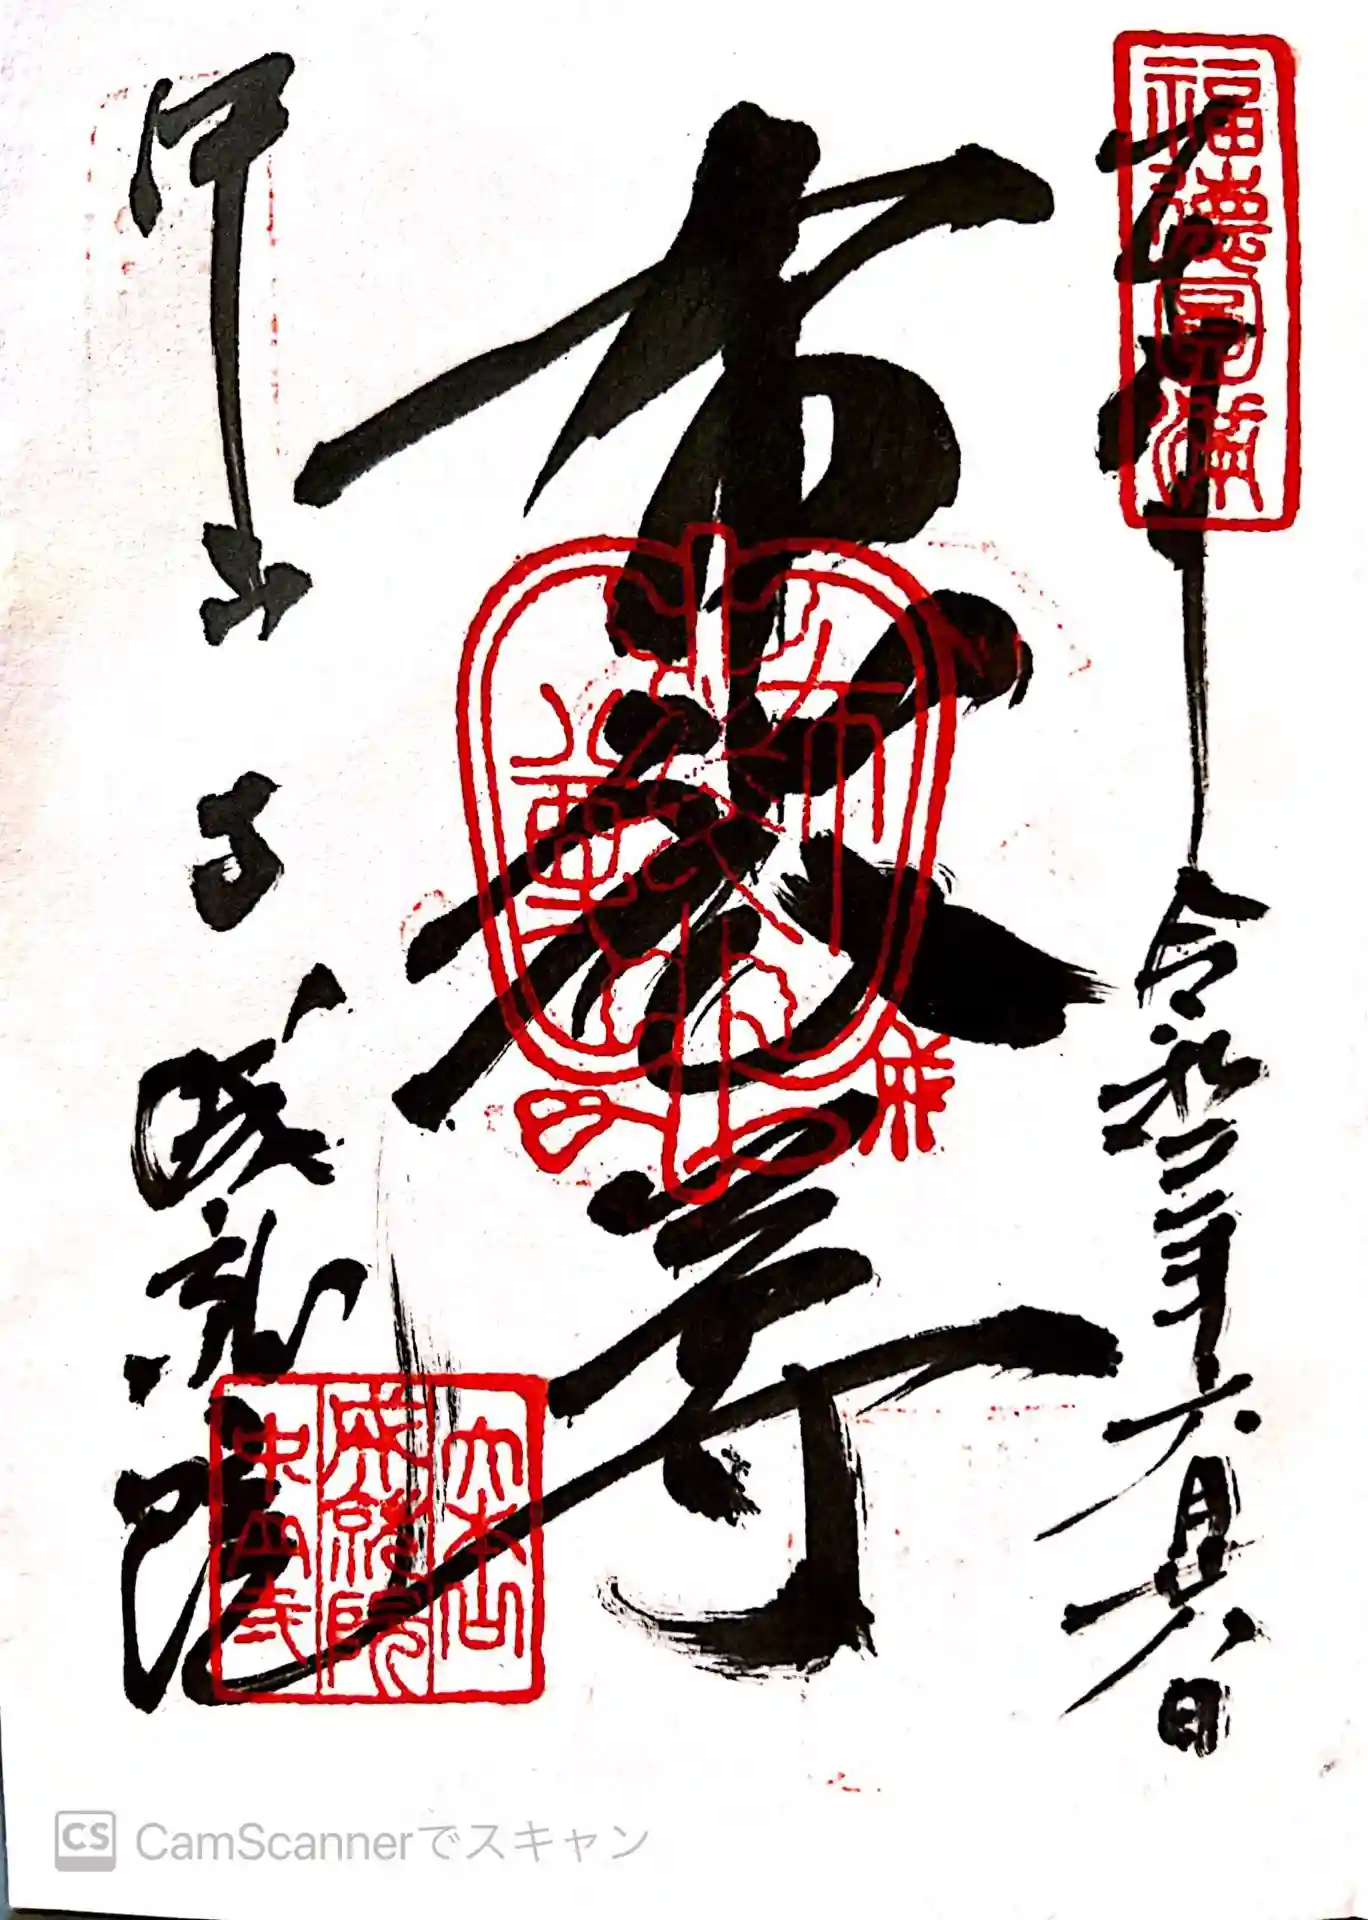 奉拝
福徳円満
令和三年六月廿六日
布袋尊
布袋尊
中山寺
成就院
大本山
成就院
中山寺
CamScannerでスキャン